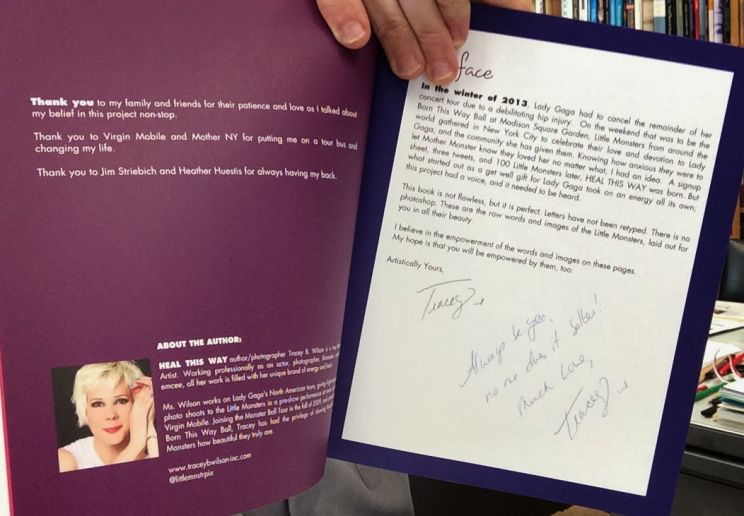 Thank you to my family and friends for their patience and love as I talked about
my belief in this project non-stop.
Thank you to Virgin Mobile and Mother NY for putting me on a tour bus and
changing my life.
Thank you to Jim Striebich and Heather Huestis for always having my back.
ABOUT THE AUTHOR:
HEAL THIS WAY author/photographer Tracey B. Wilson is a
Artist. Working professionally as an actor, photographer,
emcee, all her work is filled with her unique brand of energy and heart.
Ms. Wilson works on Lady Gaga's North American tours, giving
photo shoots to the Little Monsters in a pre-show performance
Virgin Mobile. Joining the Monster Ball Tour in the fall of 2009, and
Born This Way Ball, Tracey has had the privilege of showing
Monsters how beautiful they truly are.
www.traceybwilson-inc.com
@littlemnstrpix
face
In the winter of 2013, Lady Gaga had to cancel the remainder of her
concert tour due to a debilitating hip injury. On the weekend that was to be the
Born This Way Ball at Madison Square Garden, Little Monsters from around the
world gathered in New York City to celebrate their love and devotion to Lady
Gaga, and the community she has given them. Knowing how anxious they were to
let Mother Monster know they loved her no matter what, I had an idea. A signup
sheet, three tweets, and 100 Little Monsters later, HEAL THIS WAY was born. But
what started out as a get well gift for Lady Gaga took on an energy all its own;
this project had a voice, and it needed to be heard.
This book is not flawless, but it is perfect. Letters have not been retyped. There is no
photoshop. These are the raw words and images of the Little Monsters, laid out for
you in all their beauty.
I believe in the empowerment of the words and images on these pages.
My hope is that you will be empowered by them, too.
Artistically Yours,
Tracey
Always be you,
no one does it better!
Much Love,
Tracey